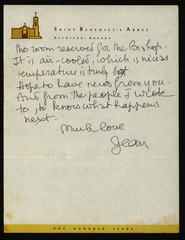 SAINT BENEDICT'S ABBEY
ATCHISON, KANSAS
the room reserved for the Bishop.
It is air-cooled, which is nice as
temperature is truly hot.
Hope to have news from you.
And from the people I wrote
to, to know what happens
next.
Much love
Jean
ONE HUNDRED YEARS